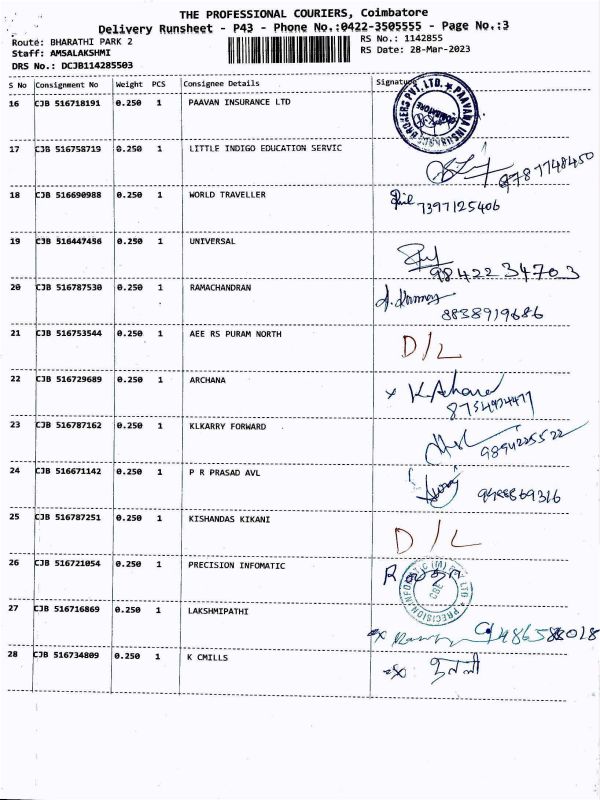 THE PROFESSIONAL COURIERS, Coimbatore
Delivery Runsheet - P43 - Phone No.:0422-3505555 - Page No.:3
Route: BHARATHI PARK 2 RS No.: 1142855
Staff: AMSALAKSHMI RS Date: 28-Mar-2023
DRS No.: DCJB114285503
S No Consignment No Weight PCS Consignee Details Signature
16 CJB 516718191 0.250 1 PAAVAN INSURANCE LTD
17 CJB 516758719 0.250 1 LITTLE INDIGO EDUCATION SERVIC
9787748450
18 CJB 516690988 0.250 1 WORLD TRAVELLER
7397125406
19 CJB 516447456 0.250 1 UNIVERSAL
9842234703
20 CJB 516787530 0.250 1 RAMACHANDRAN
8838919686
21 CJB 516753544 0.250 1 AEE RS PURAM NORTH D/L
22 CJB 516729689 0.250 1 ARCHANA x K.Achana
23 CJB 516787162 0.250 1 KLKARRY FORWARD
9894225522
24 CJB 516671142 0.250 1 P R PRASAD AVL
25 CJB 516787251 0.250 1 KISHANDAS KIKANI D/L
26 CJB 516721054 0.250 1 PRECISION INFOMATIC
PRECISION INFOMATIC (M) PVT LTD
CBE
27 CJB 516716869 0.250 1 LAKSHMIPATHI
28 CJB 516734809 0.250 1 K CMILLS